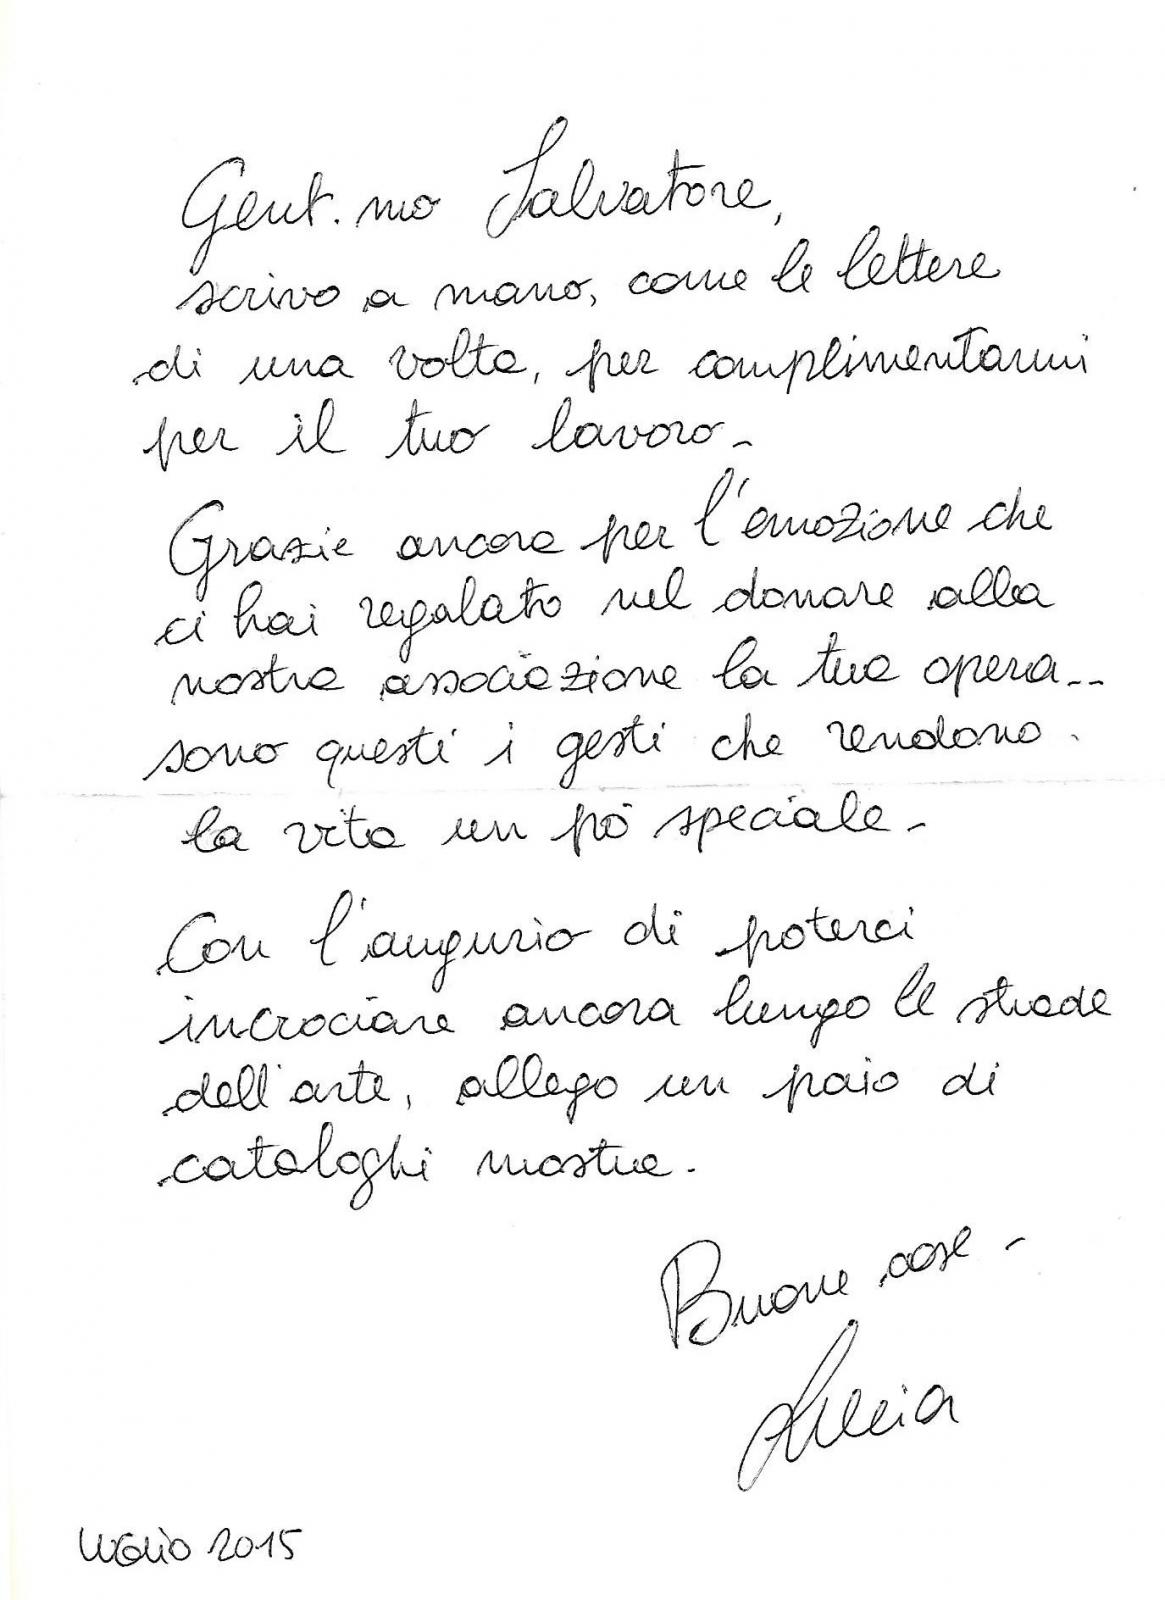 Gent.mo Salvatore,
scrivo a mano, come le lettere
di una volta, per complimentarmi
per il tuo lavoro -
Grazie ancora per l'emozione che
ci hai regalato nel donare alla
nostra associazione la tua opera --
sono questi i gesti che rendono
la vita un pò speciale -
Con l'augurio di poterci
incrociare ancora lungo le strade
dell'arte, allego un paio di
cataloghi mostre.
Buone cose -
Lucia
LUGLIO 2015